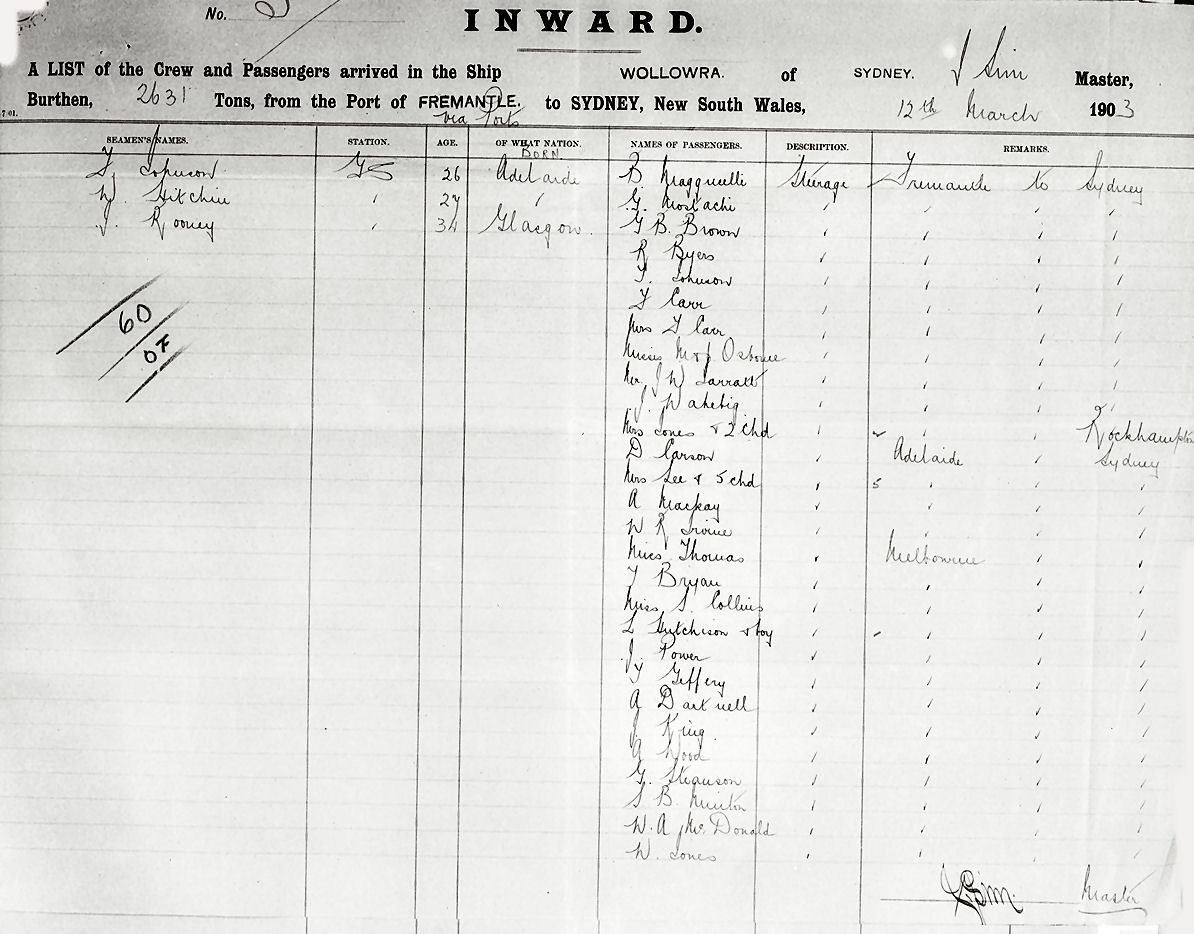 No. 2
INWARD.
A LIST of the Crew and Passengers arrived in the Ship WOLLOWRA. of SYDNEY. J Sim Master,
Burthen, 2631 Tons, from the Port of FREMANTLE. to SYDNEY, New South Wales, 12th March 1903
via Ports
SEAMEN'S NAMES. STATION. AGE. OF WHAT NATION. NAMES OF PASSENGERS. DESCRIPTION. REMARKS.
BORN.
Johnson GS 26 Adelaide B. Steerage Fremantle to Sydney
W. Hitchin " 27 " G. Mostachi " " " "
J. Rooney " 34 Glasgow. G B. Brown " " " "
R Byers " " " "
T. Johnson " " " "
F Carr " " "
Mrs F Carr " " " "
Misses M & J Osborne " " " "
Mr. J W Jarratt " " " "
J. " " " "
Mrs Jones & 2 chd Rockhampton
D Carson " Adelaide " Sydney
Mrs Lee & 5 chd " 5 " " "
A Mackay " " " "
W R Irvine " " " "
Miss Thomas " Melbourne " "
T Bryan " " " "
Miss S. Collins " " " "
L Hutchison & boy " " " "
J. Power " " " "
Y Geffery " " " "
A Dartnell " " " "
J. King " " " "
A Wood " " " "
G. " " " "
S B. " " " "
W. A McDonald " " " "
W. Jones " " " "
60
OF
J Sim. Master